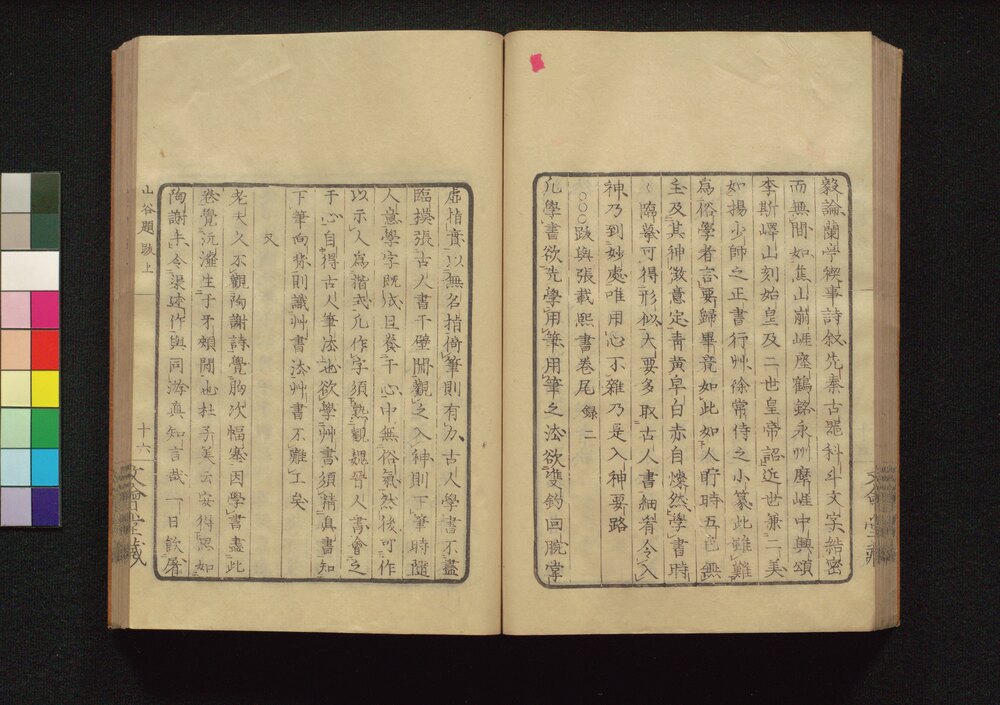 毅論蘭亭禊事詩敘先秦古噐科斗文字結宻
而無間如焦山崩崖瘞鶴銘永州摩崖中興頌
李斯嶧山刻始皇及二世皇帝詔近世兼二美
如楊少師之正書行艸徐常侍之小篆此雖難
爲俗學者言要歸畢竟如此如人眩時五色無
主及其神澂意定青黃皁白赤自燦然學書時
臨摹可得形似大要多取古人書細看令入
神乃到妙處唯用心不雜乃是入神要路
○○○跋與張載熙書卷尾 錄二
凡學書欲先學用筆用筆之法欲雙鈎回腕掌
虛指實以無名指倚筆則有力古人學書不盡
臨摸張古人書于壁閒觀之入神則下筆時隨
人意學字既成且養于心中無俗氣然後可作
以示人爲楷式凡作字須熟觀魏晉人書會之
于心自得古人筆法也欲學艸書須精真書知
下筆向背則識艸書法艸書不難工矣
又
老夫久不觀陶謝詩覺胷次愊塞因學書盡此
卷覺沆瀣生于牙頰閒也杜子美云安得思如
陶謝手令渠述作與同游真知言哉一日飲屠
山谷題跋上
十六
文會堂藏